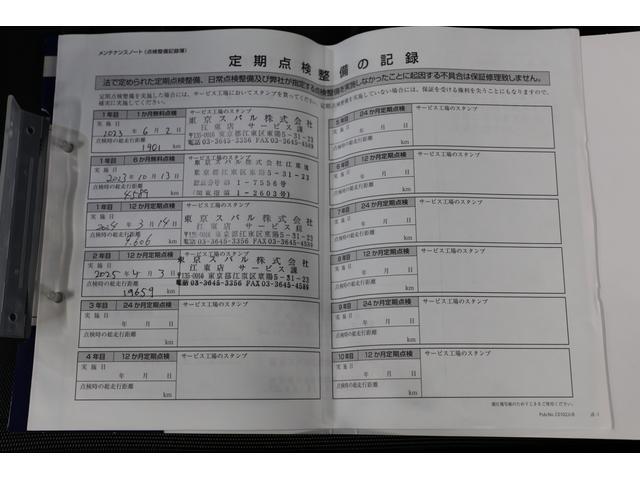 メンテナンスノート（点検整備記録簿）
定期点検整備の記録
法で定められた定期点検整備、日常点検整備及び弊社が指定する点検整備を実施しなかったことに起因する不具合は保証修理致しません。
定期点検整備を実施した場合には、サービス工場においてスタンプを貰ってください。定期点検整備を実施していない場合には、保証を受ける権利を失うことにもなりますので、
確実に実施してください。
1年目 1か月無料点検
サービス工場のスタンプ
実施日
2023年6月2日
点検時の総走行距離
1901 km
東京スバル株式会社
江東店 サービス課
東京都江東区東陽5-31-23
電話03-3645-3356 FAX03-3645-4589
1年目 6か月無料点検
サービス工場のスタンプ
実施日
2023年10月13日
点検時の総走行距離
4589 km
東京スバル株式会社江東店
東京都江東区東陽5-31-23
認証番号 第1-7556号
1-2603号)
1年目 12か月定期点検
サービス工場のスタンプ
実施日
2024年3月14日
点検時の総走行距離
km
東京スバル株式会社
江東店 サービス課
〒135-0016 東京都江東区東陽5-31-23
電話03-3645-3356 FAX03-3645-4589
2年目 12か月定期点検
サービス工場のスタンプ
実施日
2025年4月3日
点検時の総走行距離
19659 km
東京スバル株式会社
江東店 サービス課
〒135-0016 東京都江東区東陽5-31-23
電話03-3645-3356 FAX03-3645-4589
3年目 24か月定期点検
サービス工場のスタンプ
実施日
年 月 日
点検時の総走行距離
km
4年目 12か月定期点検
サービス工場のスタンプ
実施日
年 月 日
点検時の総走行距離
km
5年目 24か月定期点検
サービス工場のスタンプ
実施日
年 月 日
点検時の総走行距離
km
6年目 12か月定期点検
サービス工場のスタンプ
実施日
年 月 日
点検時の総走行距離
km
7年目 24か月定期点検
サービス工場のスタンプ
実施日
年 月 日
点検時の総走行距離
km
8年目 12か月定期点検
サービス工場のスタンプ
実施日
年 月 日
点検時の総走行距離
km
9年目 24か月定期点検
サービス工場のスタンプ
実施日
年 月 日
点検時の総走行距離
km
10年目 12か月定期点検
サービス工場のスタンプ
実施日
年 月 日
点検時の総走行距離
km